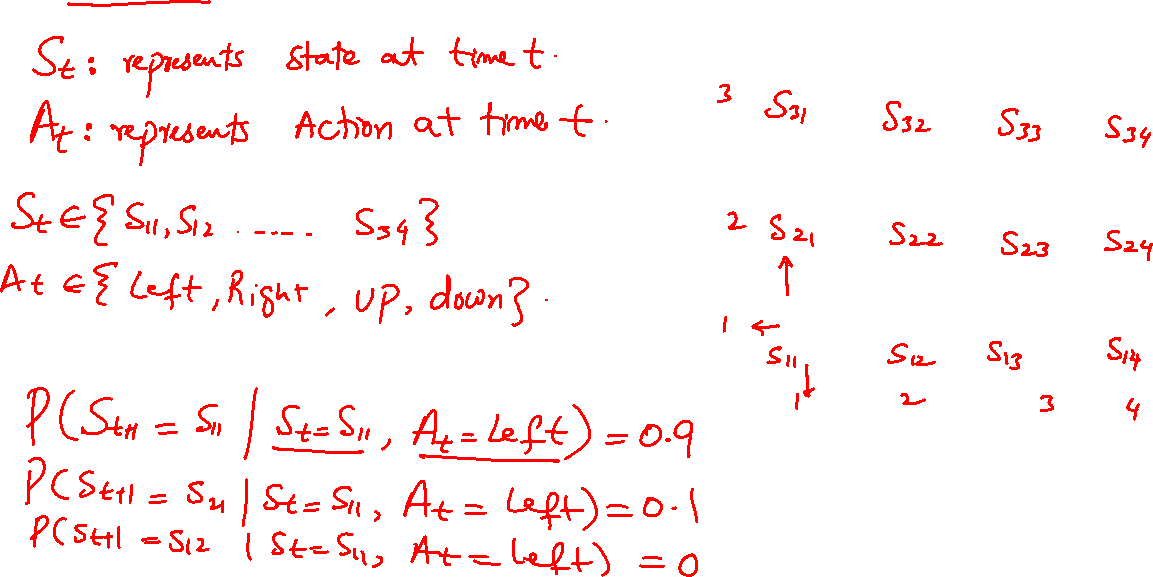 S_t : represents state at time t.
A_t : represents Action at time t.
S_t ∈ { S_11, S_12 ...... S_34 }
A_t ∈ { Left, Right, UP, down }.
P(S_t+1 = S_11 / S_t = S_11, A_t = Left) = 0.9
P(S_t+1 = S_21 | S_t = S_11, A_t = Left) = 0.1
P(S_t+1 = S_12 | S_t = S_11, A_t = Left) = 0
3 S_31 S_32 S_33 S_34
2 S_21 S_22 S_23 S_24
↑
1 ←
S_11 S_12 S_13 S_14
↓
1 2 3 4